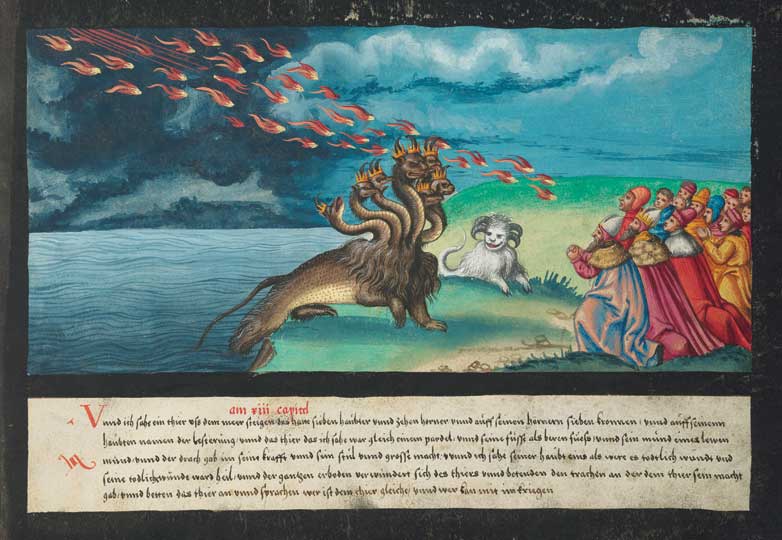 am xiii capitel
Vnnd ich sahe ein thier vss dem meer steigen das hatt sieben haübter vnnd zehen horner vnnd auff seinen hornern sieben kronnen / vnnd auff seinenn
haübten namen der lesterüng / vnnd das thier das ich sahe war gleich einem pardel / vnnd seine füsse als beren füess / vnnd sein münd eines lewen
münd / vnnd der drach gab im seine krafft vnnd sein stül vnnd grosse macht / vnnd ich sahe seiner haübt eins als were es todtlich wündt vnd
seine todlichwünde ward heil / vnnd der gantzen erboden verwündert sich des thiers vnnd betenden den trachen an der dem thier sein macht
gab / vnnd betten das thier an vnnd sprachen wer ist dem thier gleiche / vnnd wer kan mit im kriegen